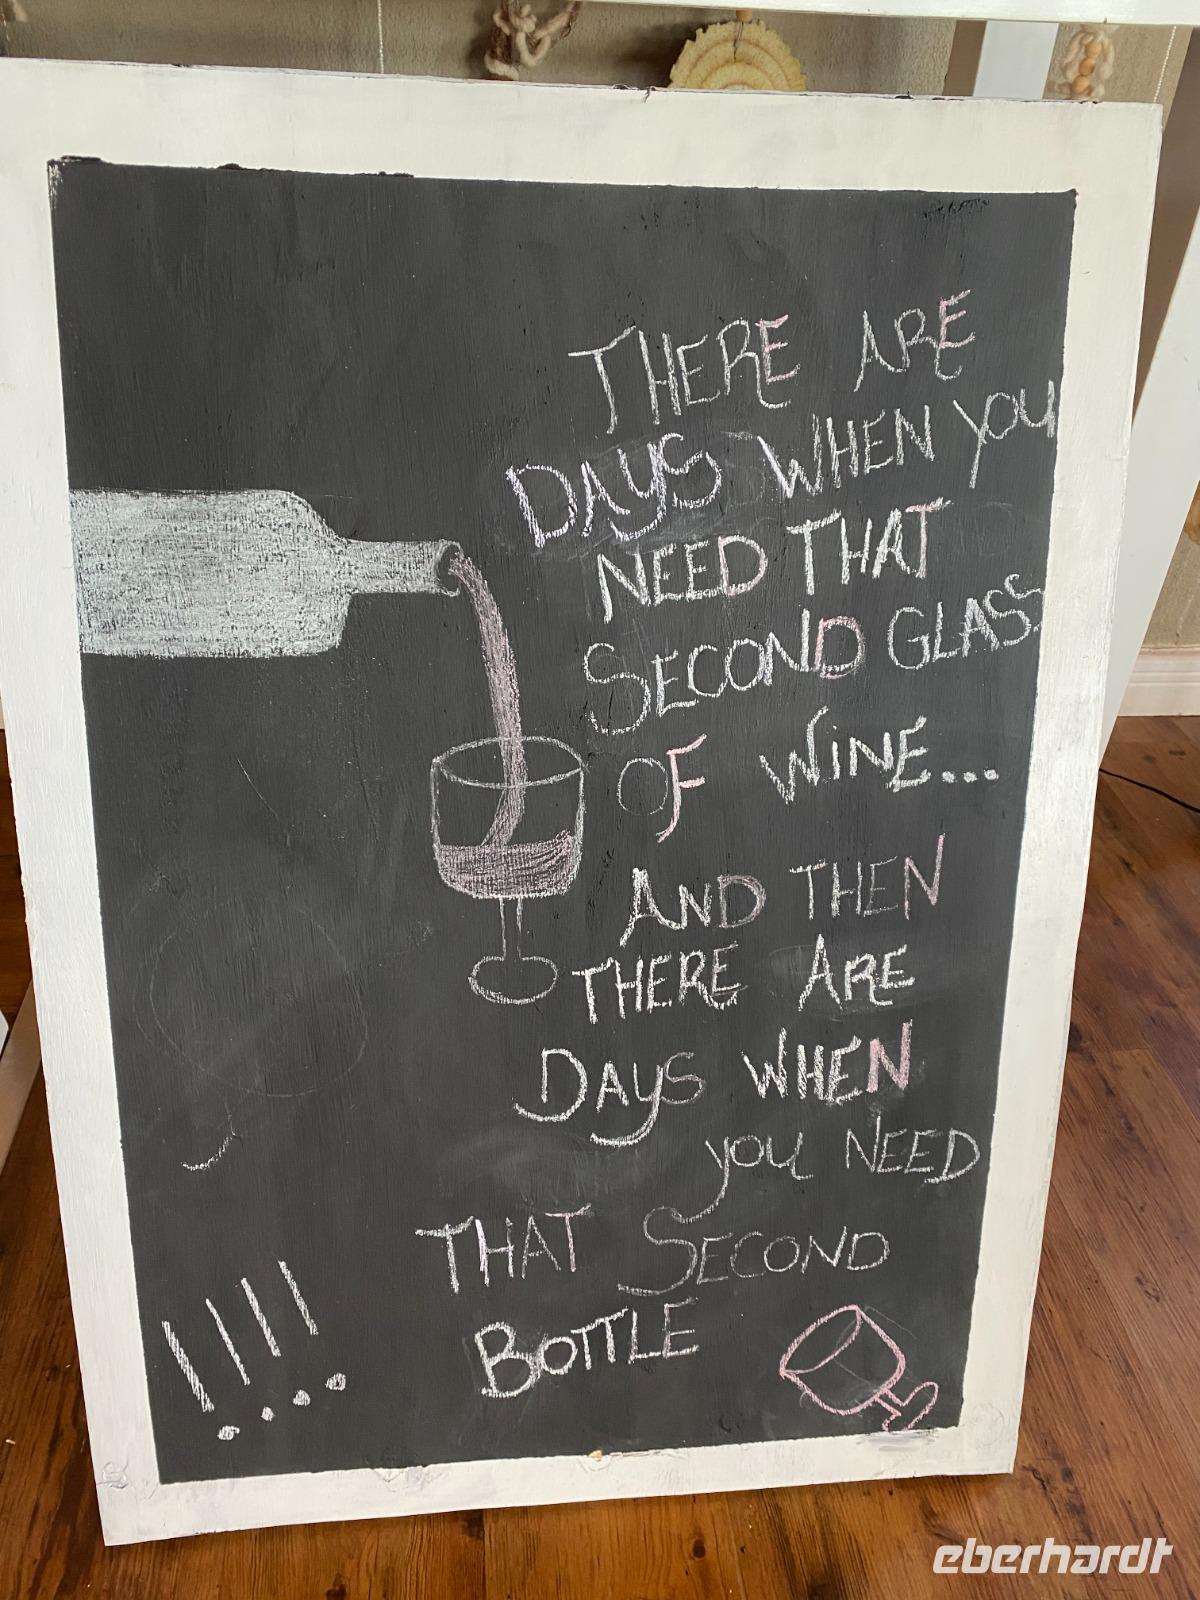 THERE ARE
DAYS WHEN YOU
NEED THAT
SECOND GLASS
OF WINE...
AND THEN
THERE ARE
DAYS WHEN
YOU NEED
THAT SECOND
BOTTLE
!!!!
eberhardt